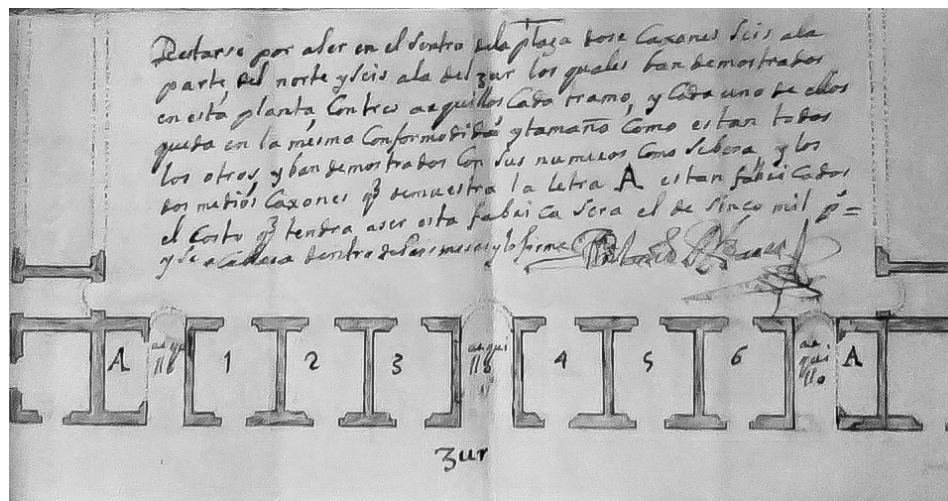 Restarse por aser en el sentro dela plaza dose Caxones seis ala
parte del norte y seis ala del zur los quales ban demostrados
en esta planta Con tres arquillos Cada tramo, y Cada uno de ellos
queda en la mesma Conformodidad y tamaño Como estan todos
los otros, y ban demostrados Con sus numeros Como se bera, y los
dos medios Caxones q̃ demuestra la letra A estan fabricados
el Costo q̃ tendra aser esta fabrica sera el de sinco mil pˢ=
y se acabara dentro de seis meses y lo firme
A
arqui
llo
1
2
3
arqui
llo
4
5
6
ar
qui
llo
A
zur